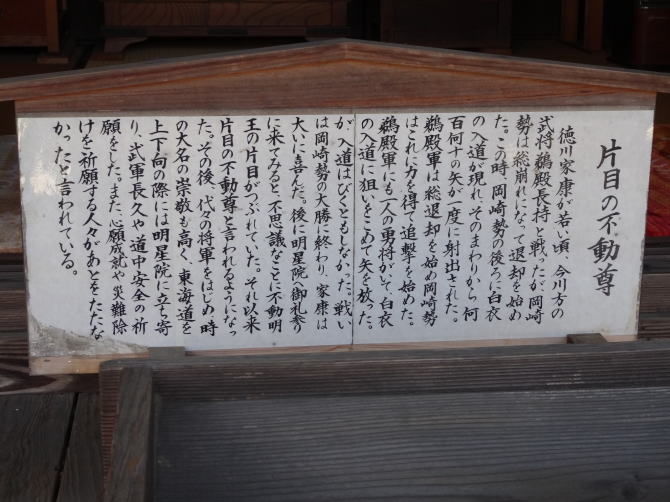 片目の不動尊
徳川家康が若い頃、今川方の
武将鵜殿長持と戦ったが岡崎
勢は総崩れになって退却を始め
た。この時、岡崎勢の後ろに白衣
の入道が現れ、そのまわりから何
百何十の矢が一度に射出された。
鵜殿軍は総退却を始め岡崎勢
はこれに力を得て追撃を始めた。
鵜殿軍にも一人の勇将がいて、白衣
の入道に狙いをこめて矢を放った。
が、入道はびくともしなかった。戦い
は岡崎勢の大勝に終わり、家康は
大いに喜んだ。後に明星院へ御礼参り
に来てみると、不思議なことに不動明
王の片目がつぶれていた。それ以来
片目の不動尊と言われるようになっ
た。その後、代々の将軍をはじめ、時
の大名の崇敬も高く、東海道を
上下向の際には明星院に立ち寄
り、武軍長久や道中安全の祈
願をした。また、心願成就や災難除
けを祈願する人々があとをたたな
かったと言われている。